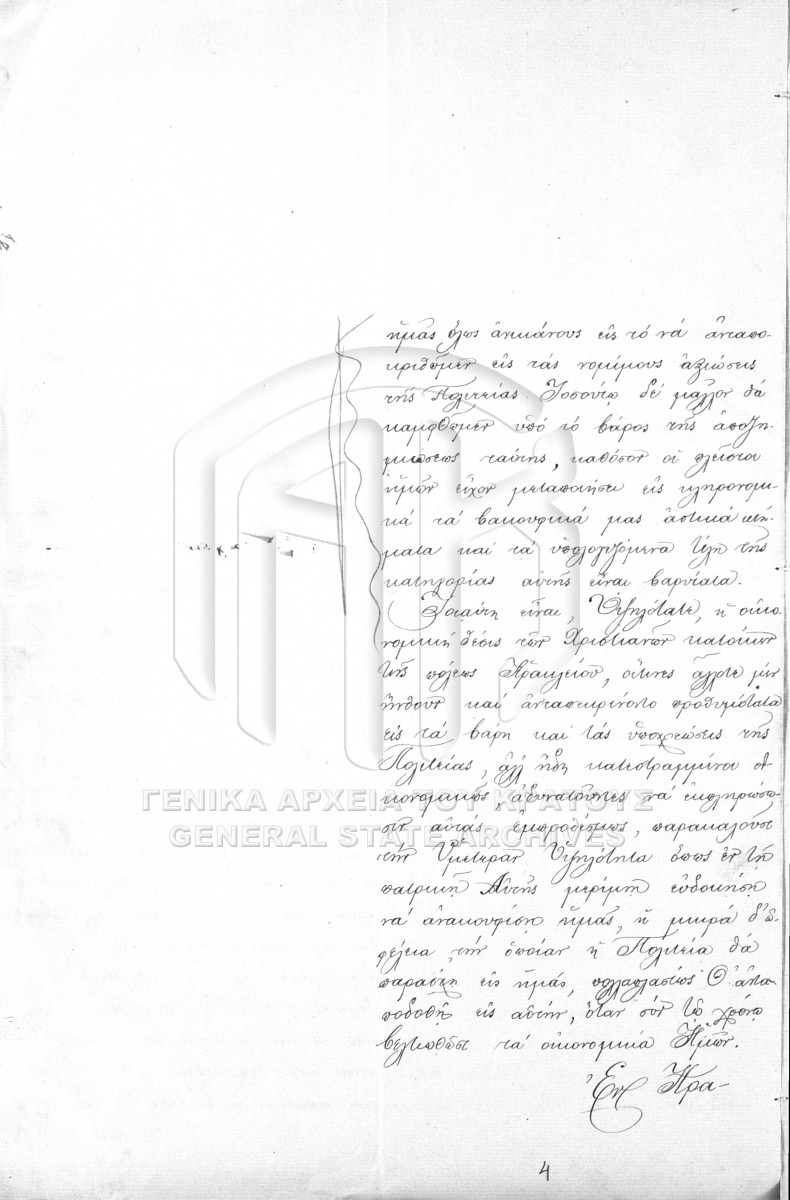 ἡμᾶς ὅλως ἀνικάνους εἰς τό νά ἀνταπο-
κριθῶμεν εἰς τάς νομίμους ἀξιώσεις
τῆς Πολιτείας. Τοσούτῳ δέ μᾶλλον θά
καμφθῶμεν ὑπό τό βάρος τῆς ἀποζη-
μιώσεως ταύτης, καθόσον οἱ πλεῖστοι
ἡμῶν εἶχον μεταποιήσει εἰς κληρονομι-
κά τά βακουφικά μας ἀστικά κτή-
ματα καί τά ὑπολογιζόμενα τέλη τῆς
κατηγορίας αὐτῆς εἶναι βαρύτατα.
Τοιαύτη εἶναι, Ὑψηλότατε, ἡ οἰκο-
νομική θέσις τῶν Χριστιανῶν κατοίκων
τῆς πόλεως Ἡρακλείου, οἵτινες ἄλλοτε μέν
ἤνθουν καί ἀνταπεκρίνοντο προθυμότατα
εἰς τά βάρη καί τάς ὑποχρεώσεις τῆς
Πολιτείας, ἀλλ' ἤδη κατεστραμμένοι οἰ-
κονομικῶς, ἀδυνατοῦντες νά ἐκπληρώσω-
σιν αὐτάς ἐμπροθέσμως, παρακαλοῦσι
τήν Ὑμετέραν Ὑψηλότητα ὅπως ἐν τῇ
πατρικῇ Αὐτῆς μερίμνῃ εὐδοκήσῃ
νά ἀνακουφίσῃ ἡμᾶς, ἡ μικρά δ' ὠ-
φέλεια τήν ὁποίαν ἡ Πολιτεία θά
παράσχῃ εἰς ἡμᾶς, πολλαπλασίως Θ' ἀντα-
ποδοθῇ εἰς αὐτήν, ὅταν σύν τῷ χρόνῳ
βελτιωθῶσι τά οἰκονομικά Ἡμῶν.
Ἐν Ἡρα-
4
ΓΕΝΙΚΑ ΑΡΧΕΙΑ ΤΟΥ ΚΡΑΤΟΥΣ
GENERAL STATE ARCHIVES